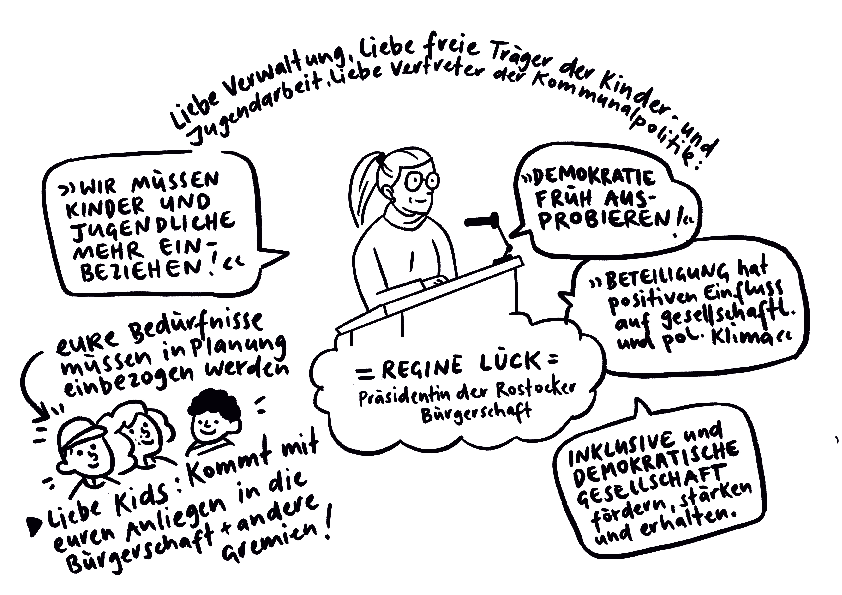 Liebe Verwaltung, Liebe freie Träger der Kinder- und
Jugendarbeit, Liebe Vertreter der Kommunalpolitik:
»WIR MÜSSEN
KINDER UND
JUGENDLICHE
MEHR EIN-
BEZIEHEN!«
»DEMOKRATIE
FRÜH AUS-
PROBIEREN!«
»BETEILIGUNG hat
positiven Einfluss
auf gesellschaftl.
und pol. Klima«
= REGINE LÜCK =
Präsidentin der Rostocker
Bürgerschaft
INKLUSIVE und
DEMOKRATISCHE
GESELLSCHAFT
fördern, stärken
und erhalten.
euRe Bedürfnisse
müssen in Planung
einbezogen werden
Liebe Kids: Kommt mit
euren Anliegen in die
Bürgerschaft + andere
Gremien!